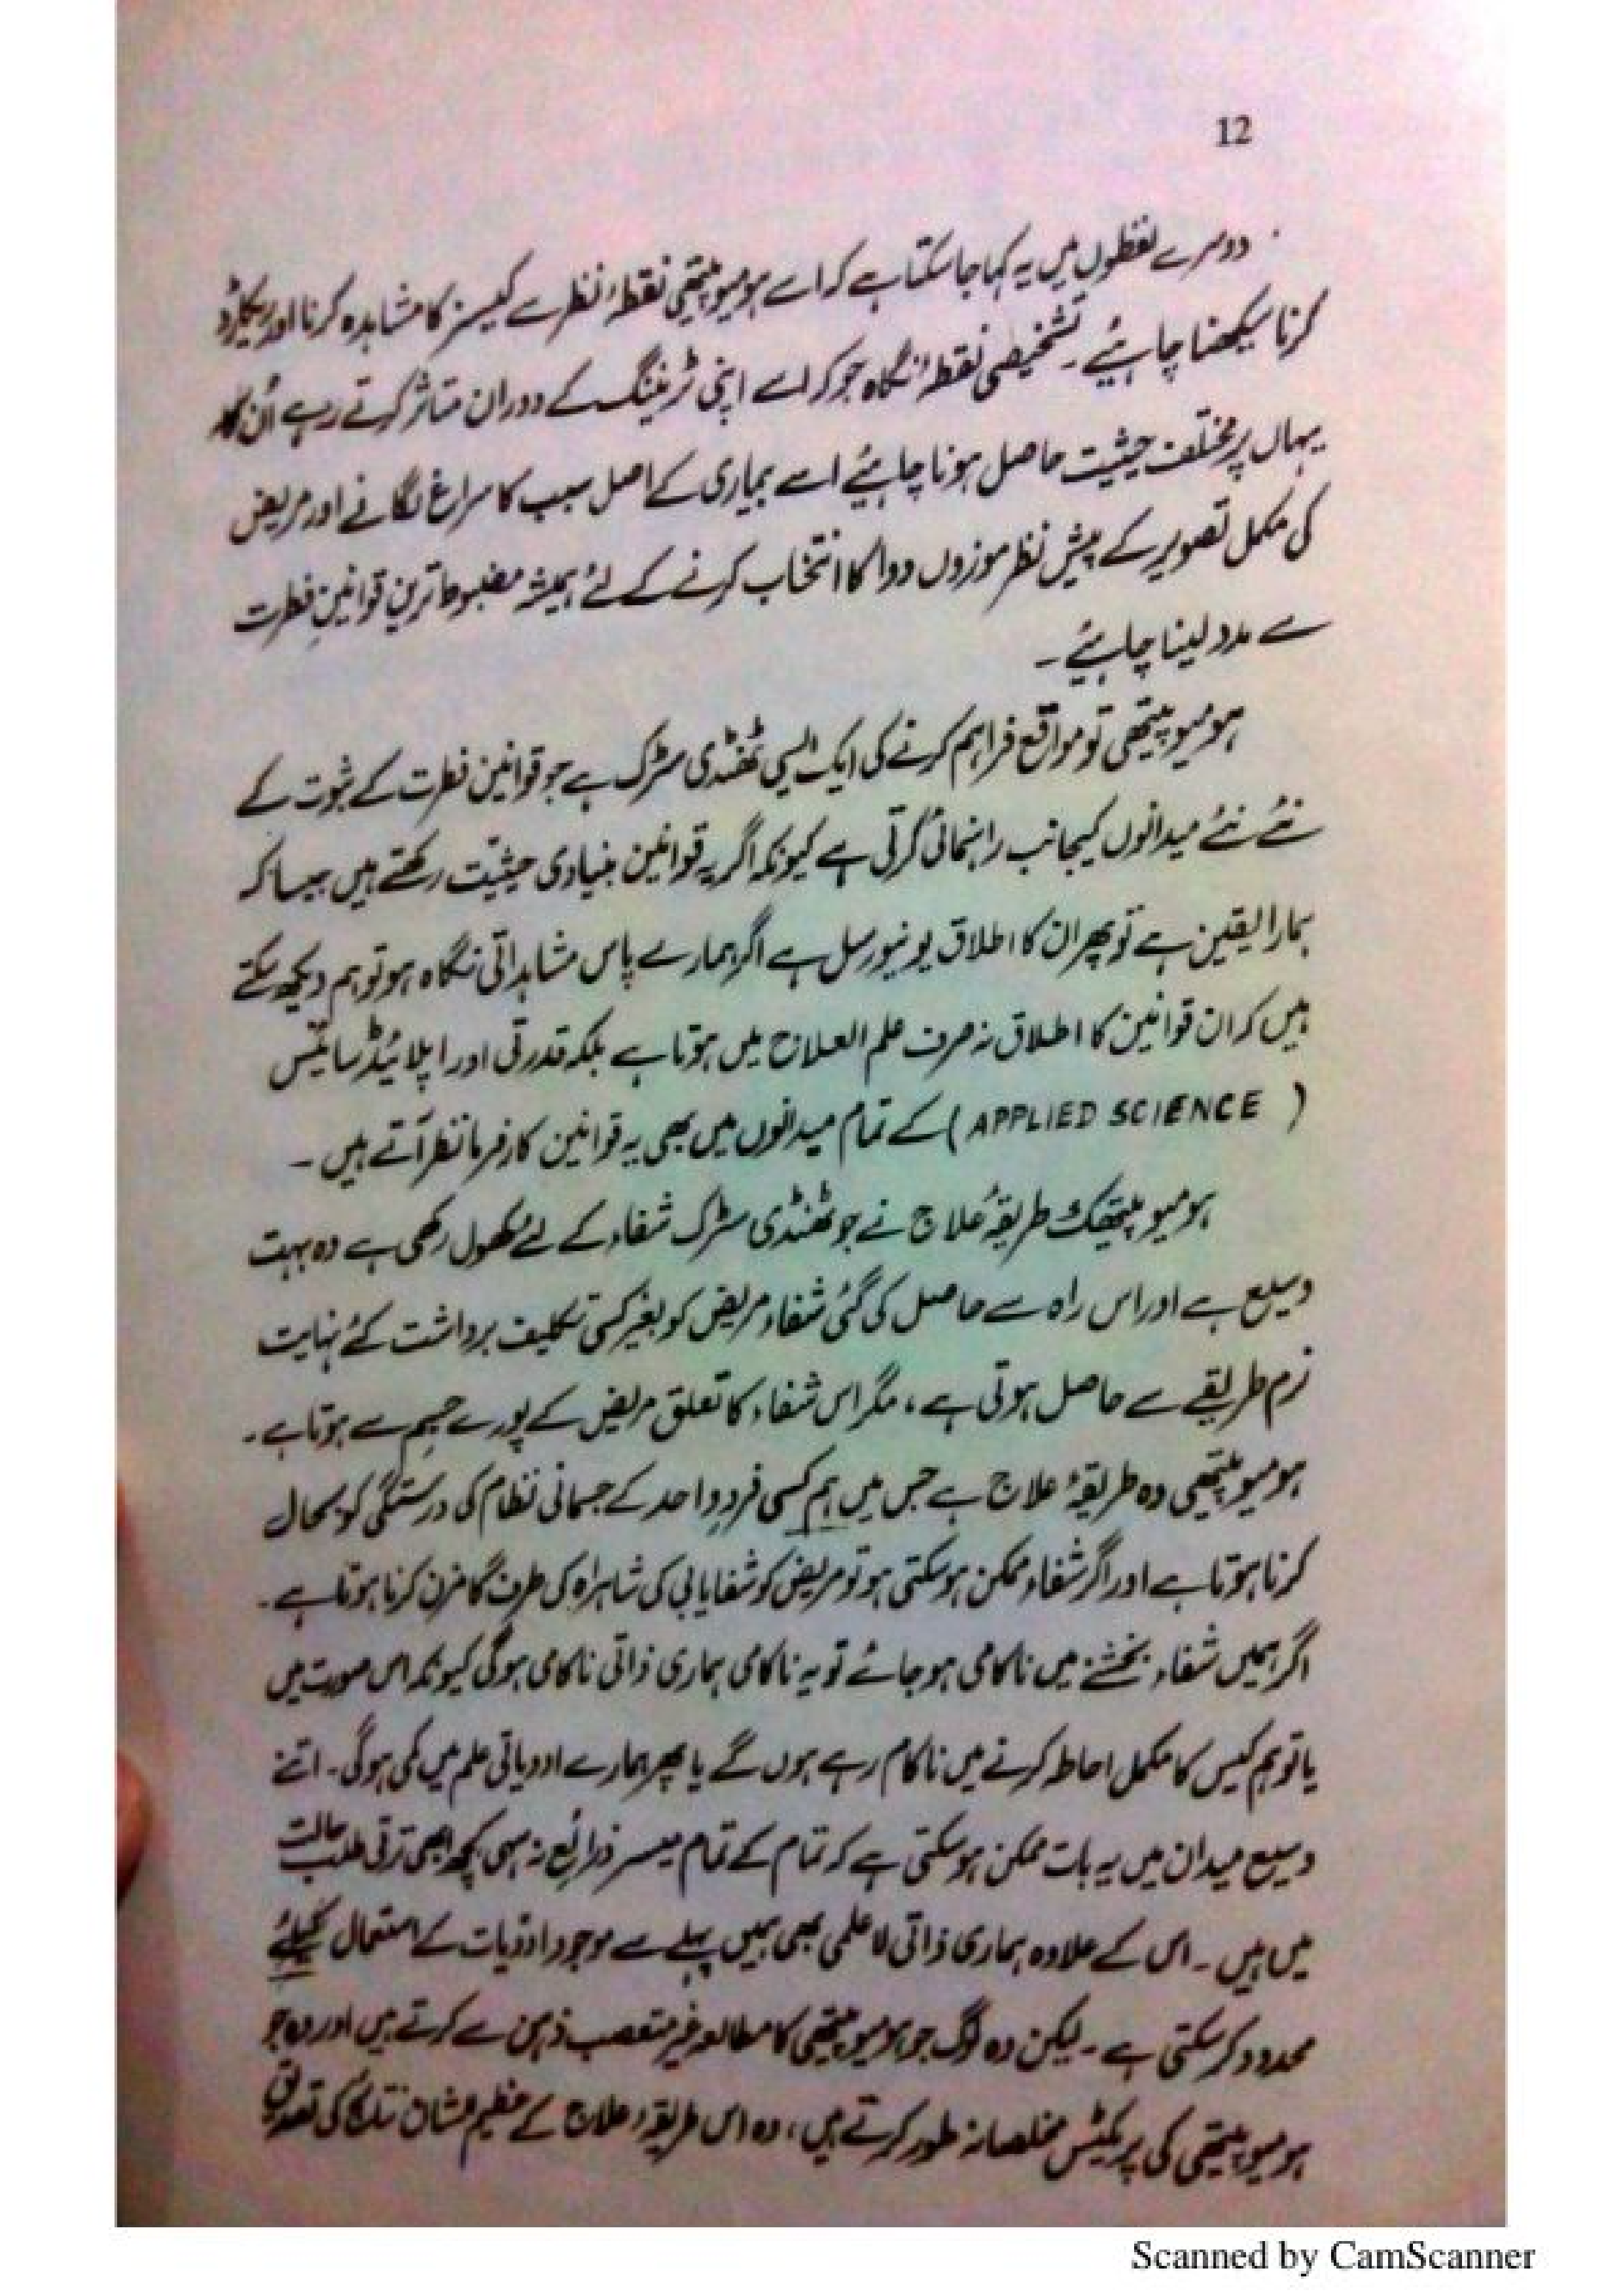 12
دوسرے لفظوں میں یہ کہا جاسکتا ہے کہ اسے ہومیوپیتھی نقطۂ نظر سے کیسز کا مشاہدہ کرنا اور ریکارڈ
کرنا سیکھنا چاہیئے ۔ تشخیصی نقطۂ نگاہ جو کہ اسے اپنی ٹریننگ کے دوران متاثر کرتے رہے اُن کو
یہاں پر مختلف حیثیت حاصل ہونا چاہیئے اسے بیماری کے اصل سبب کا سراغ لگانے اور مریض
کی مکمل تصویر کے پیش نظر موزوں دوا کا انتخاب کرنے کے لئے ہمیشہ مضبوط ترین قوانینِ فطرت
سے مدد لینا چاہیئے ۔
ہومیوپیتھی تو مواقع فراہم کرنے کی ایک ایسی ٹھنڈی سڑک ہے جو قوانین فطرت کے ثبوت کے
نئے نئے میدانوں کیجانب راہنمائی کرتی ہے کیونکہ اگر یہ قوانین بنیادی حیثیت رکھتے ہیں جیسا کہ
ہمارا یقین ہے تو پھر ان کا اطلاق یونیورسل ہے اگر ہمارے پاس مشاہداتی نگاہ ہو تو ہم دیکھ سکتے
ہیں کہ ان قوانین کا اطلاق نہ صرف علم العلاج میں ہوتا ہے بلکہ قدرتی اور اپلائیڈ سائنس
( APPLIED SCIENCE ) کے تمام میدانوں میں بھی یہ قوانین کارفرما نظر آتے ہیں ۔
ہومیوپیتھک طریقۂ علاج نے جو ٹھنڈی سڑک شفاء کے لئے کھول رکھی ہے وہ بہت
وسیع ہے اور اس راہ سے حاصل کی گئی شفاء مریض کو بغیر کسی تکلیف برداشت کئے نہایت
نرم طریقے سے حاصل ہوتی ہے ، مگر اس شفاء کا تعلق مریض کے پورے جسم سے ہوتا ہے ۔
ہومیوپیتھی وہ طریقۂ علاج ہے جس میں ہم کسی فردِ واحد کے جسمانی نظام کی درستگی کو بحال
کرنا ہوتا ہے اور اگر شفاء ممکن ہوسکتی ہو تو مریض کو شفایابی کی شاہراہ کی طرف گامزن کرنا ہوتا ہے ۔
اگر ہمیں شفاء بخشنے میں ناکامی ہو جائے تو یہ ناکامی ہماری ذاتی ناکامی ہوگی کیونکہ اس صورت میں
یا تو ہم کیس کا مکمل احاطہ کرنے میں ناکام رہے ہوں گے یا پھر ہمارے ادویاتی علم میں کمی ہوگی ۔ اتنے
وسیع میدان میں یہ بات ممکن ہوسکتی ہے کہ تمام کے تمام میسر ذرائع نہ سہی کچھ ابھی ترقی طلب حالت
میں ہیں ۔ اس کے علاوہ ہماری ذاتی لاعلمی بھی ہمیں پہلے سے موجود ادویات کے استعمال کیلئے
محدود کرسکتی ہے ۔ لیکن وہ لوگ جو ہومیوپیتھی کا مطالعہ غیر متعصب ذہن سے کرتے ہیں اور وہ جو
ہومیوپیتھی کی پریکٹس مخلصانہ طور کرتے ہیں ، وہ اس طریقۂ علاج کے عظیم الشان نتائج کی تصدیق
Scanned by CamScanner